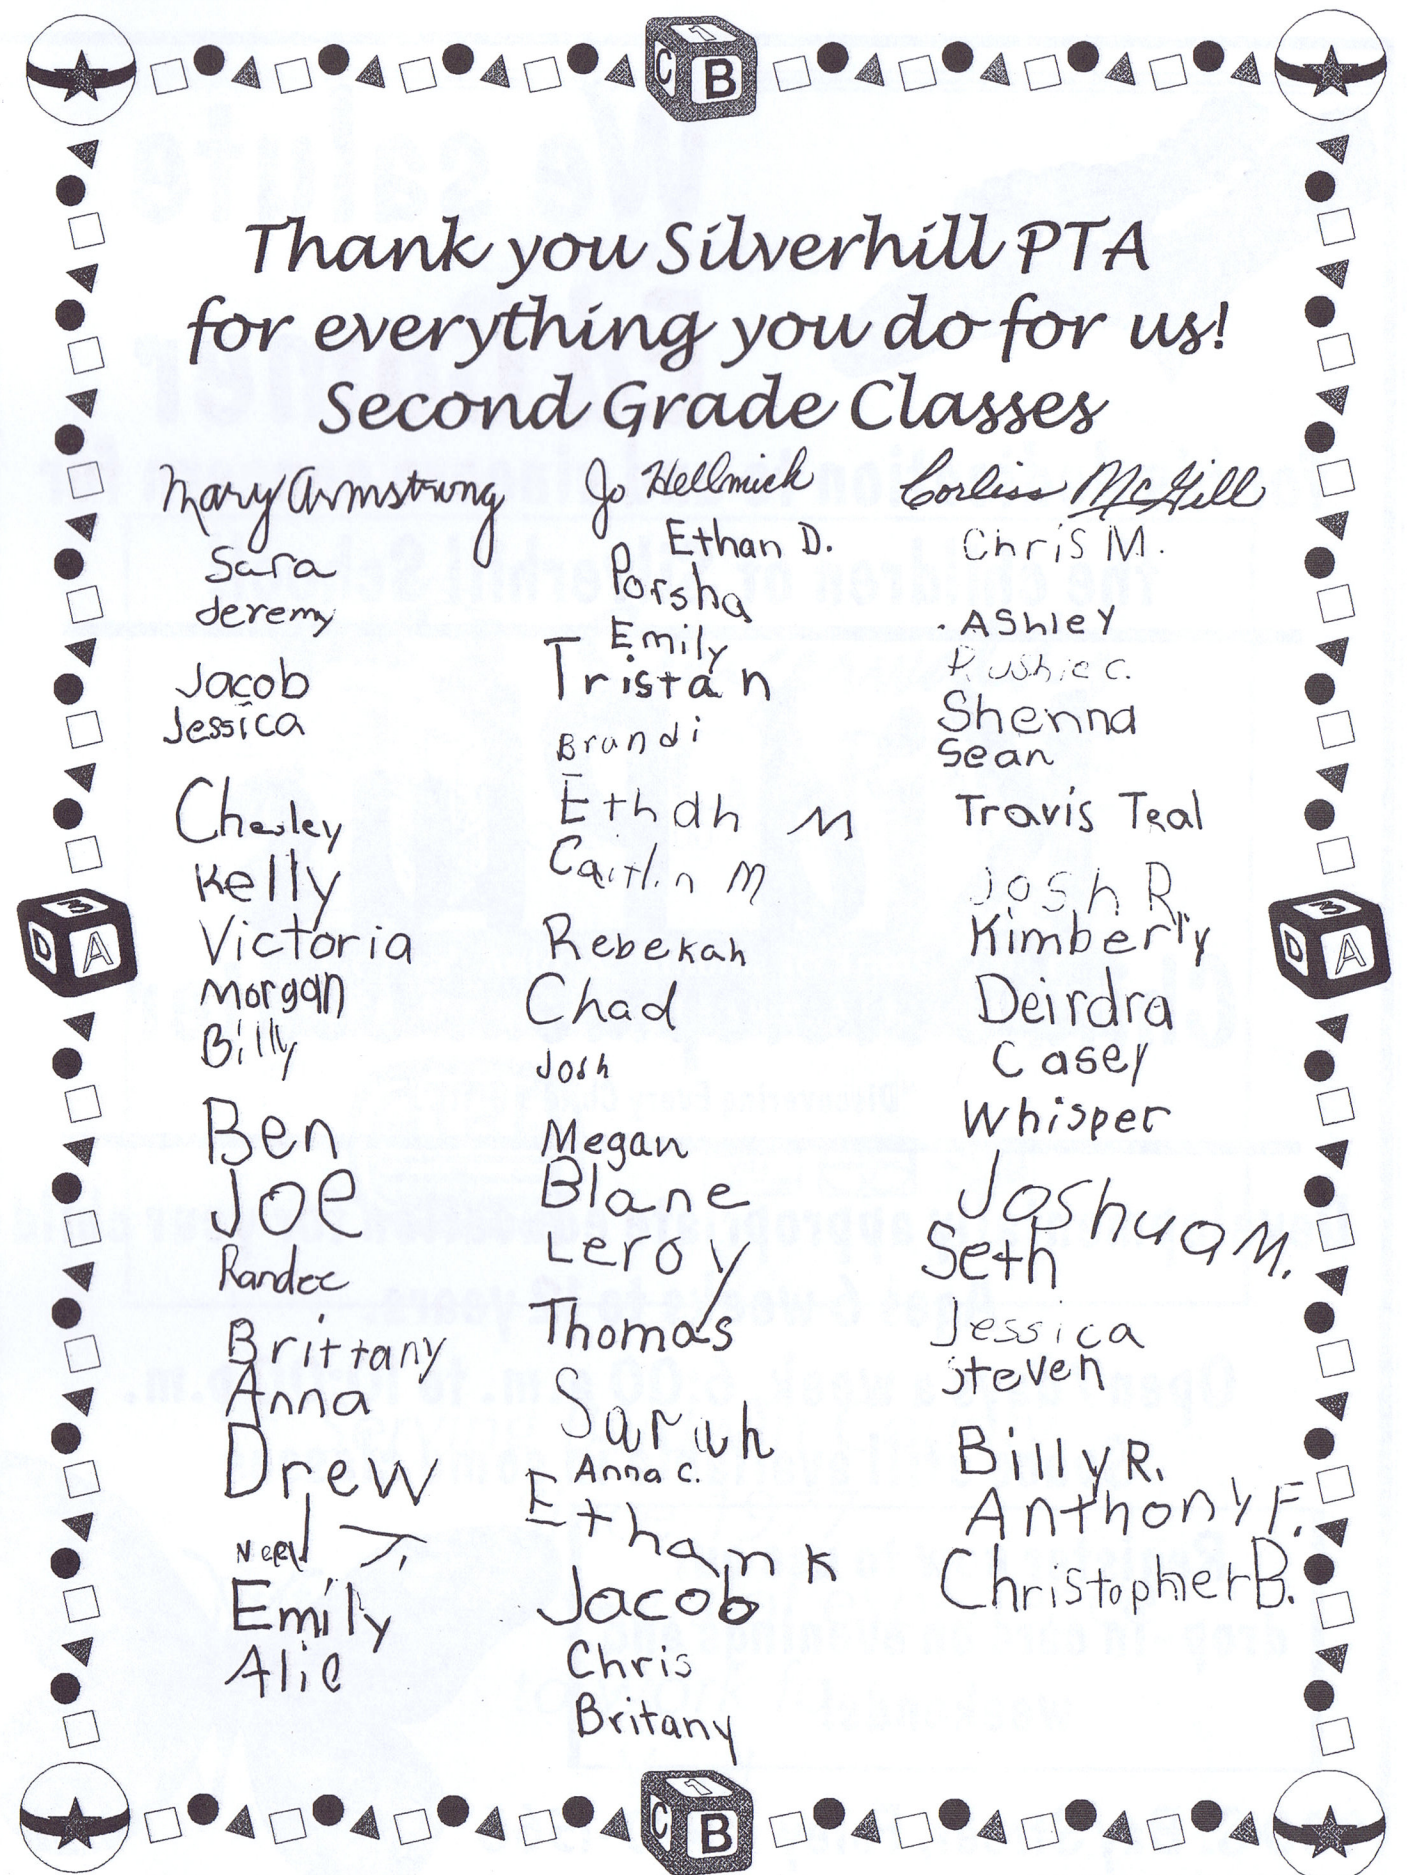 Thank you Silverhill PTA
for everything you do for us!
Second Grade Classes
Mary Armstrong
Sara
Jeremy
Jacob
Jessica
Chesley
Kelly
Victoria
Morgan
Billy
Ben
Joe
Randee
Brittany
Anna
Drew
J.
Emily
Alic
Jo Hellmich
Ethan D.
Porsha
Emily
Tristan
Brandi
Ethan M
Caitlin M
Rebekah
Chad
Josh
Megan
Blane
Leroy
Thomas
Sarah
Anna C.
Ethan K
Jacob
Chris
Britany
Corliss McGill
Chris M.
Ashley
C.
Shenna
Sean
Travis Teal
Josh R.
Kimberly
Deirdra
Casey
Whisper
Joshua M.
Seth
Jessica
Steven
Billy R.
Anthony F.
Christopher B.
1
C B
3
D A
3
D A
1
C B